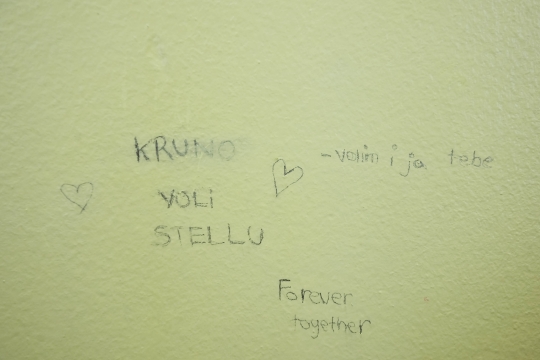 KRUNO
VOLi
STELLU
-volim i ja tebe
Forever
together